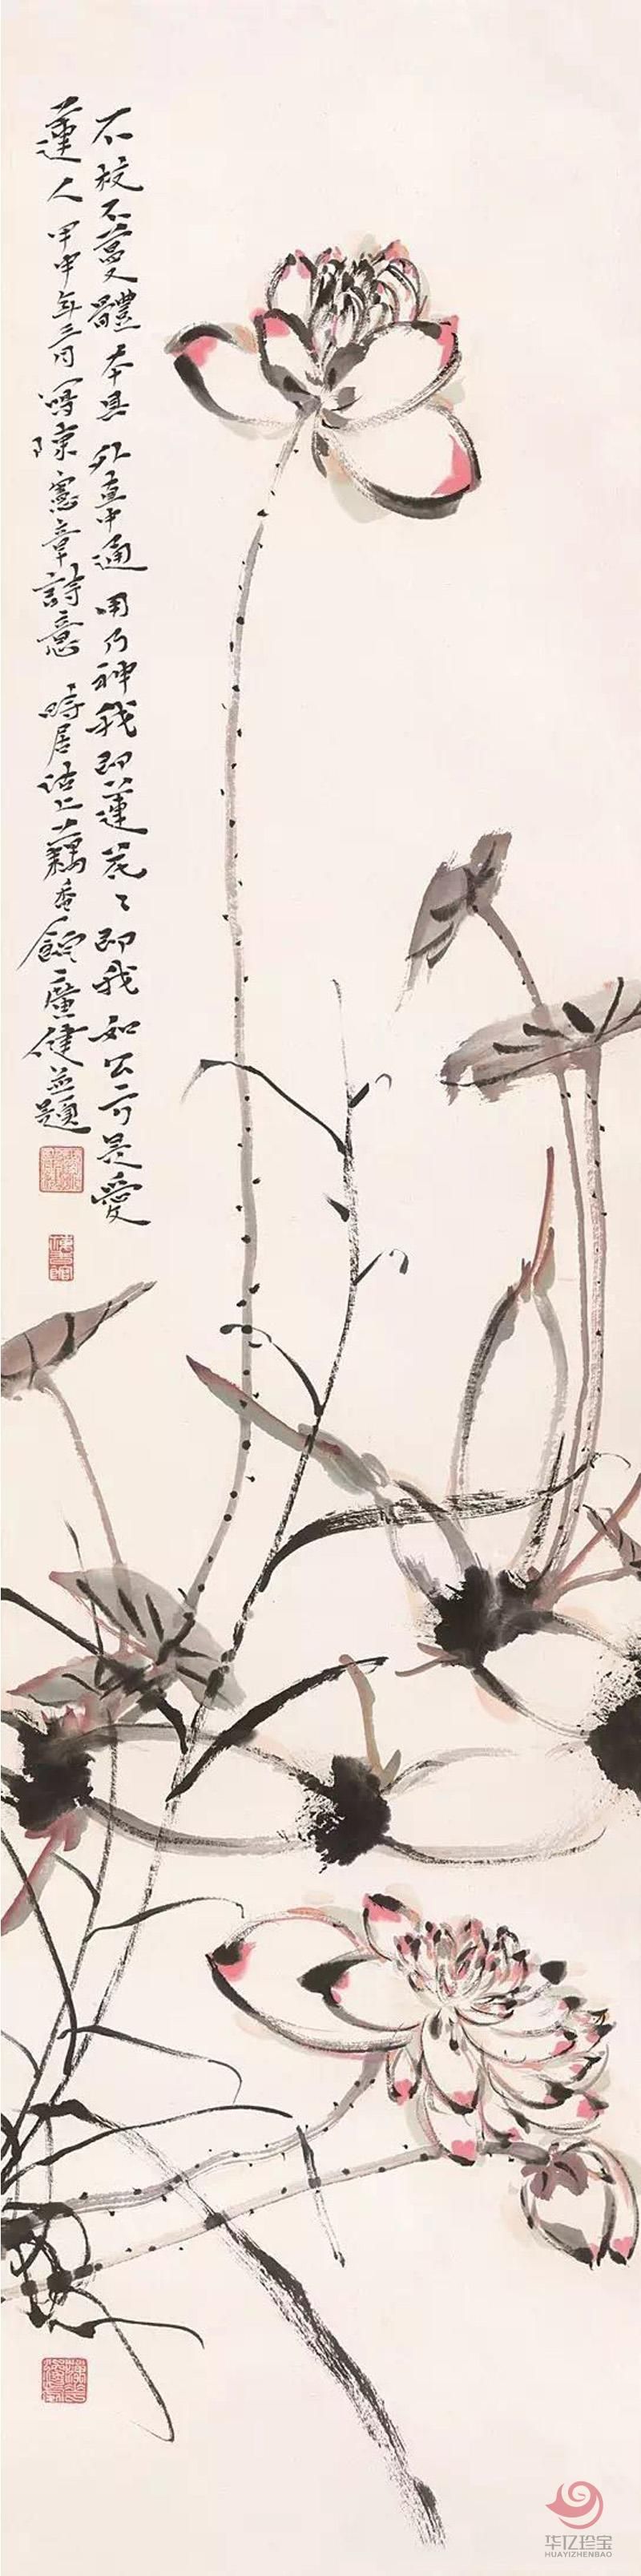 不枝不蔓體本具外直中通用乃神我即蓮花〻即我如公可是愛
蓮人甲申年三月寫陳憲章詩意時居沽上藕香館廣健並題
华亿珍宝
HUAYIZHENBAO